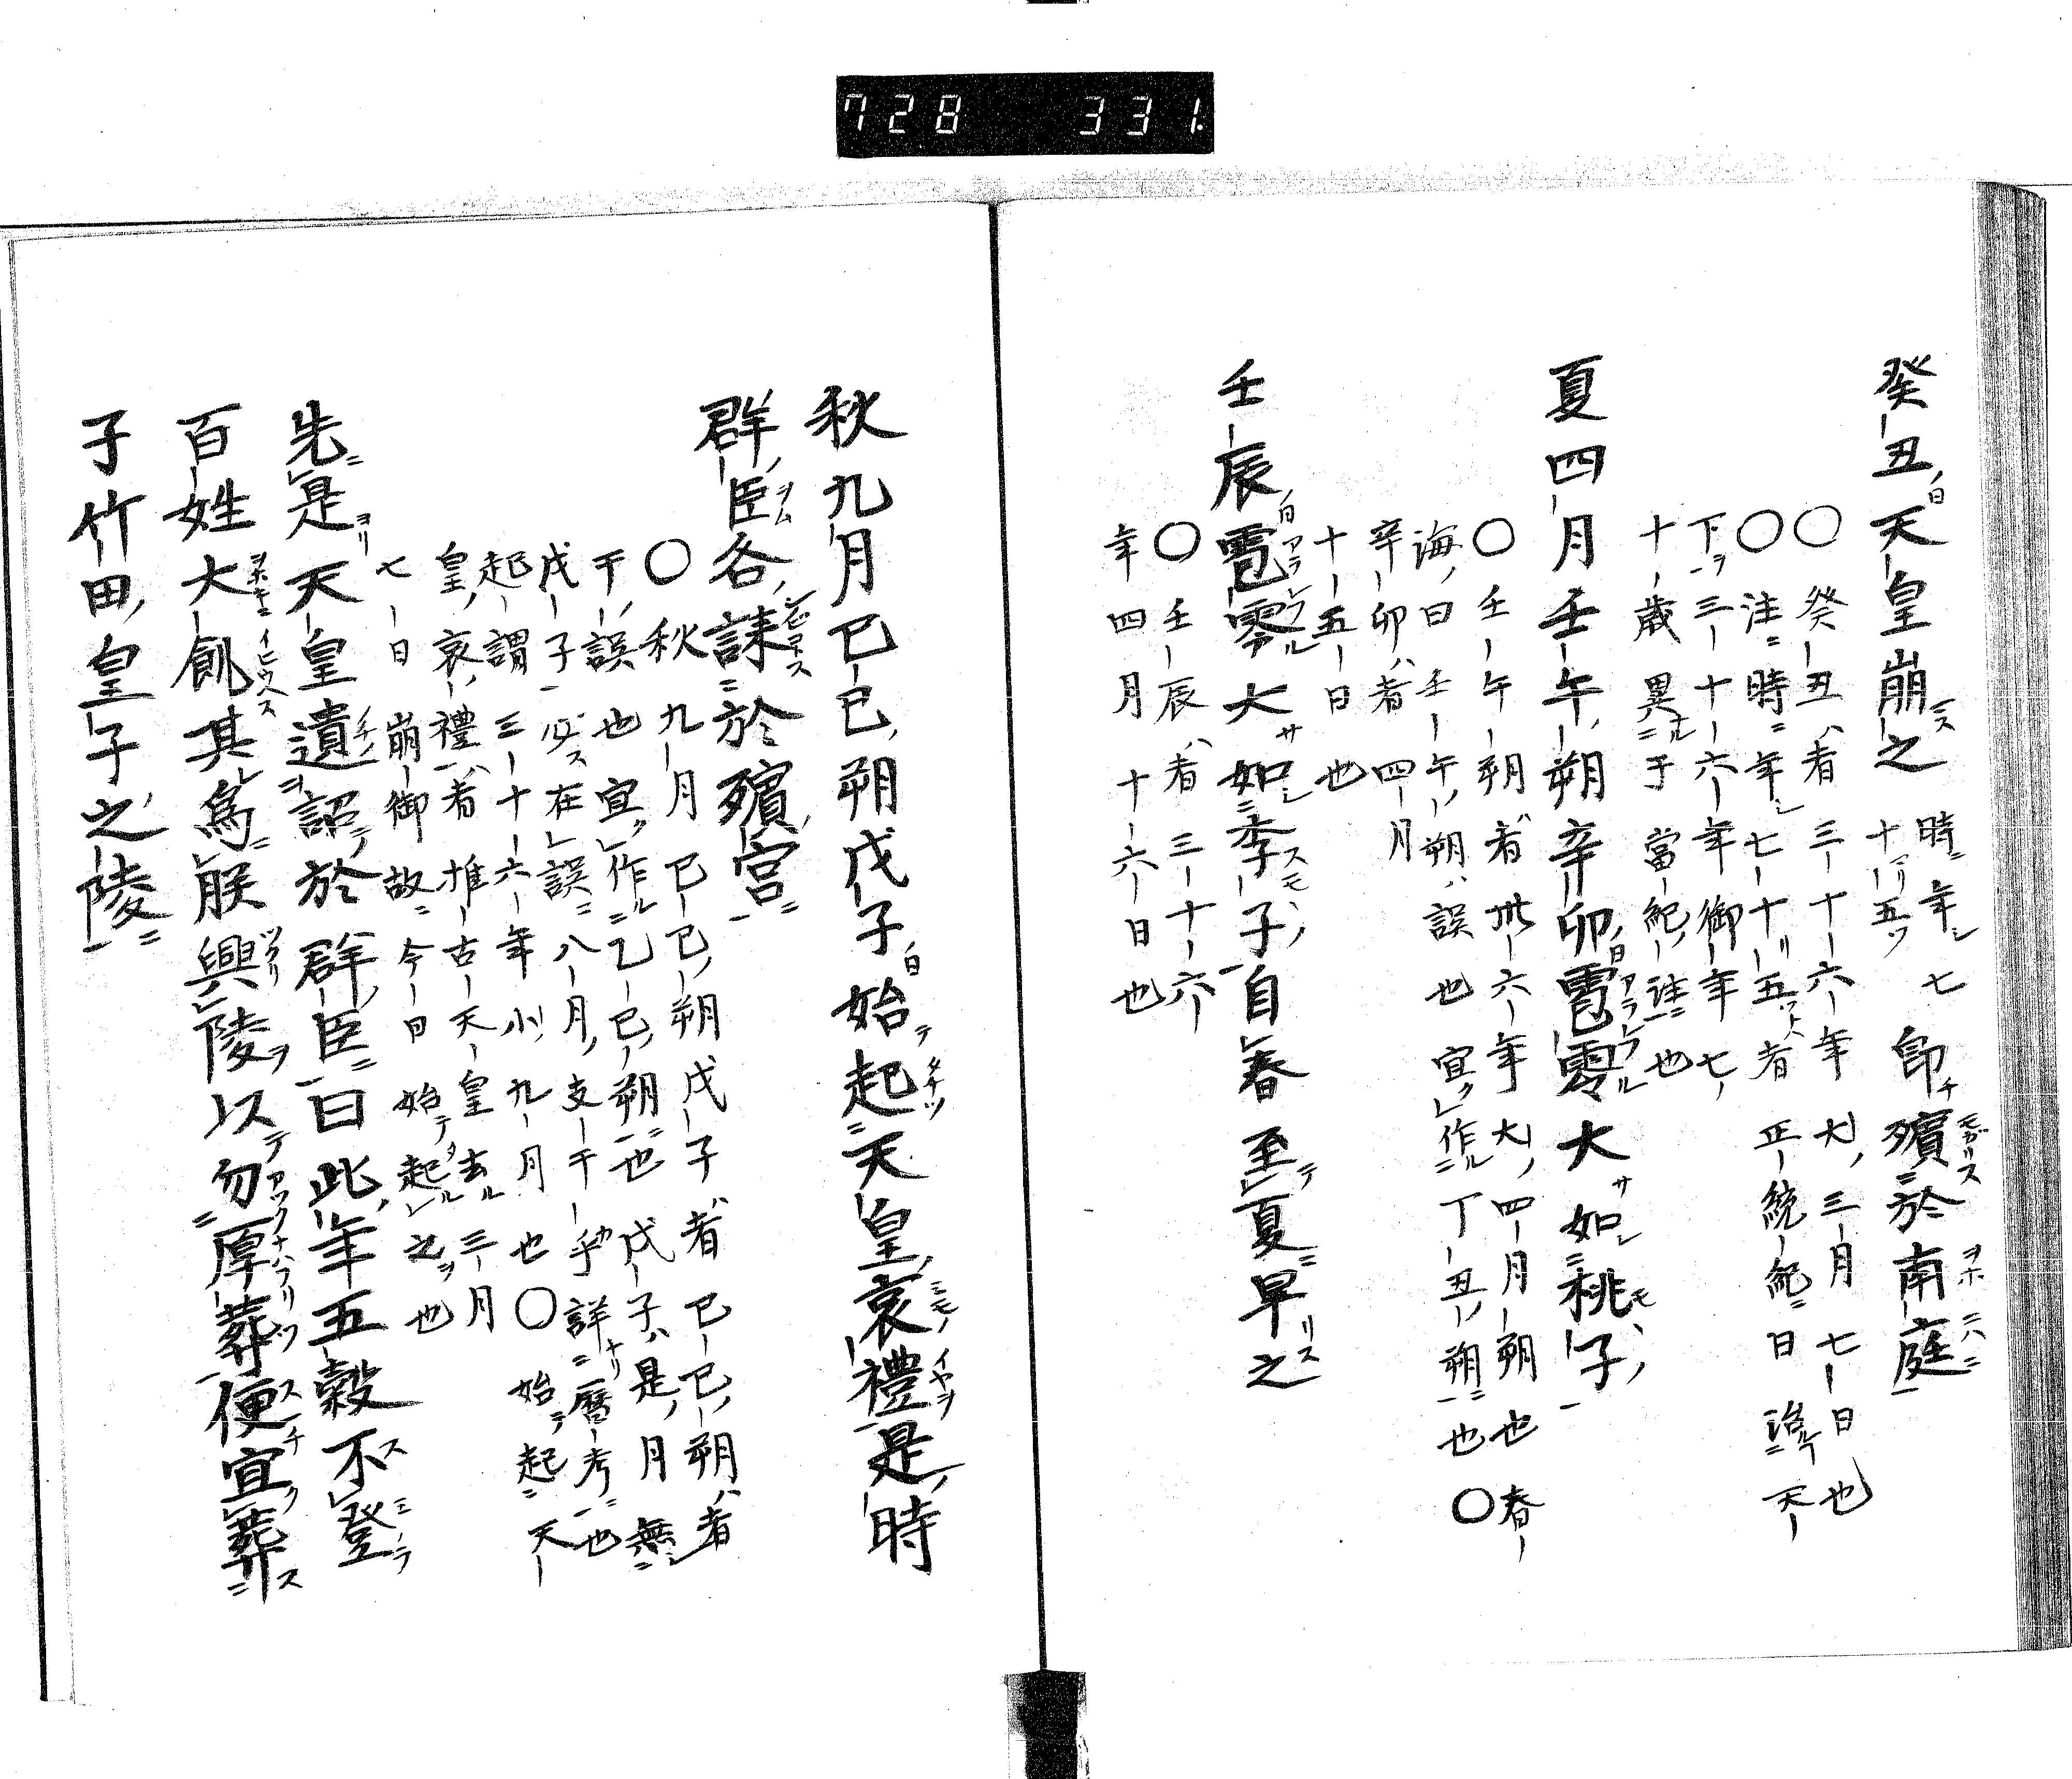 728 331
癸丑天皇崩之 時年七十五 即殯於南庭
〇癸丑者三十六年大三月七日也
〇注時年七十五者正統紀曰治天
下三十六年御年七
十歳異于當紀註也
夏四月壬午朔辛卯雹零大如桃子
〇壬午朔者卅六年大四月朔也春
海曰壬午朔誤也宜作丁丑朔也〇
辛卯者四月
十五日也
壬辰雹零大如李子自春至夏旱之
〇壬辰者三十六
年四月十六日也
秋九月己巳朔戊子始起天皇哀禮是時
群臣各誄於殯宮
〇秋九月己巳朔戊子者己巳朔者
干誤也宜作乙巳朔也戊子是月無
戊子必在誤八月支干乎詳暦考也
起謂三十六年小九月也〇始起天
皇哀禮者推古天皇去三月
七日崩御故今日始起之也
先是天皇遺詔於群臣曰此年五穀不登
百姓大飢其為朕興陵以勿厚葬便宜葬
子竹田皇子之陵